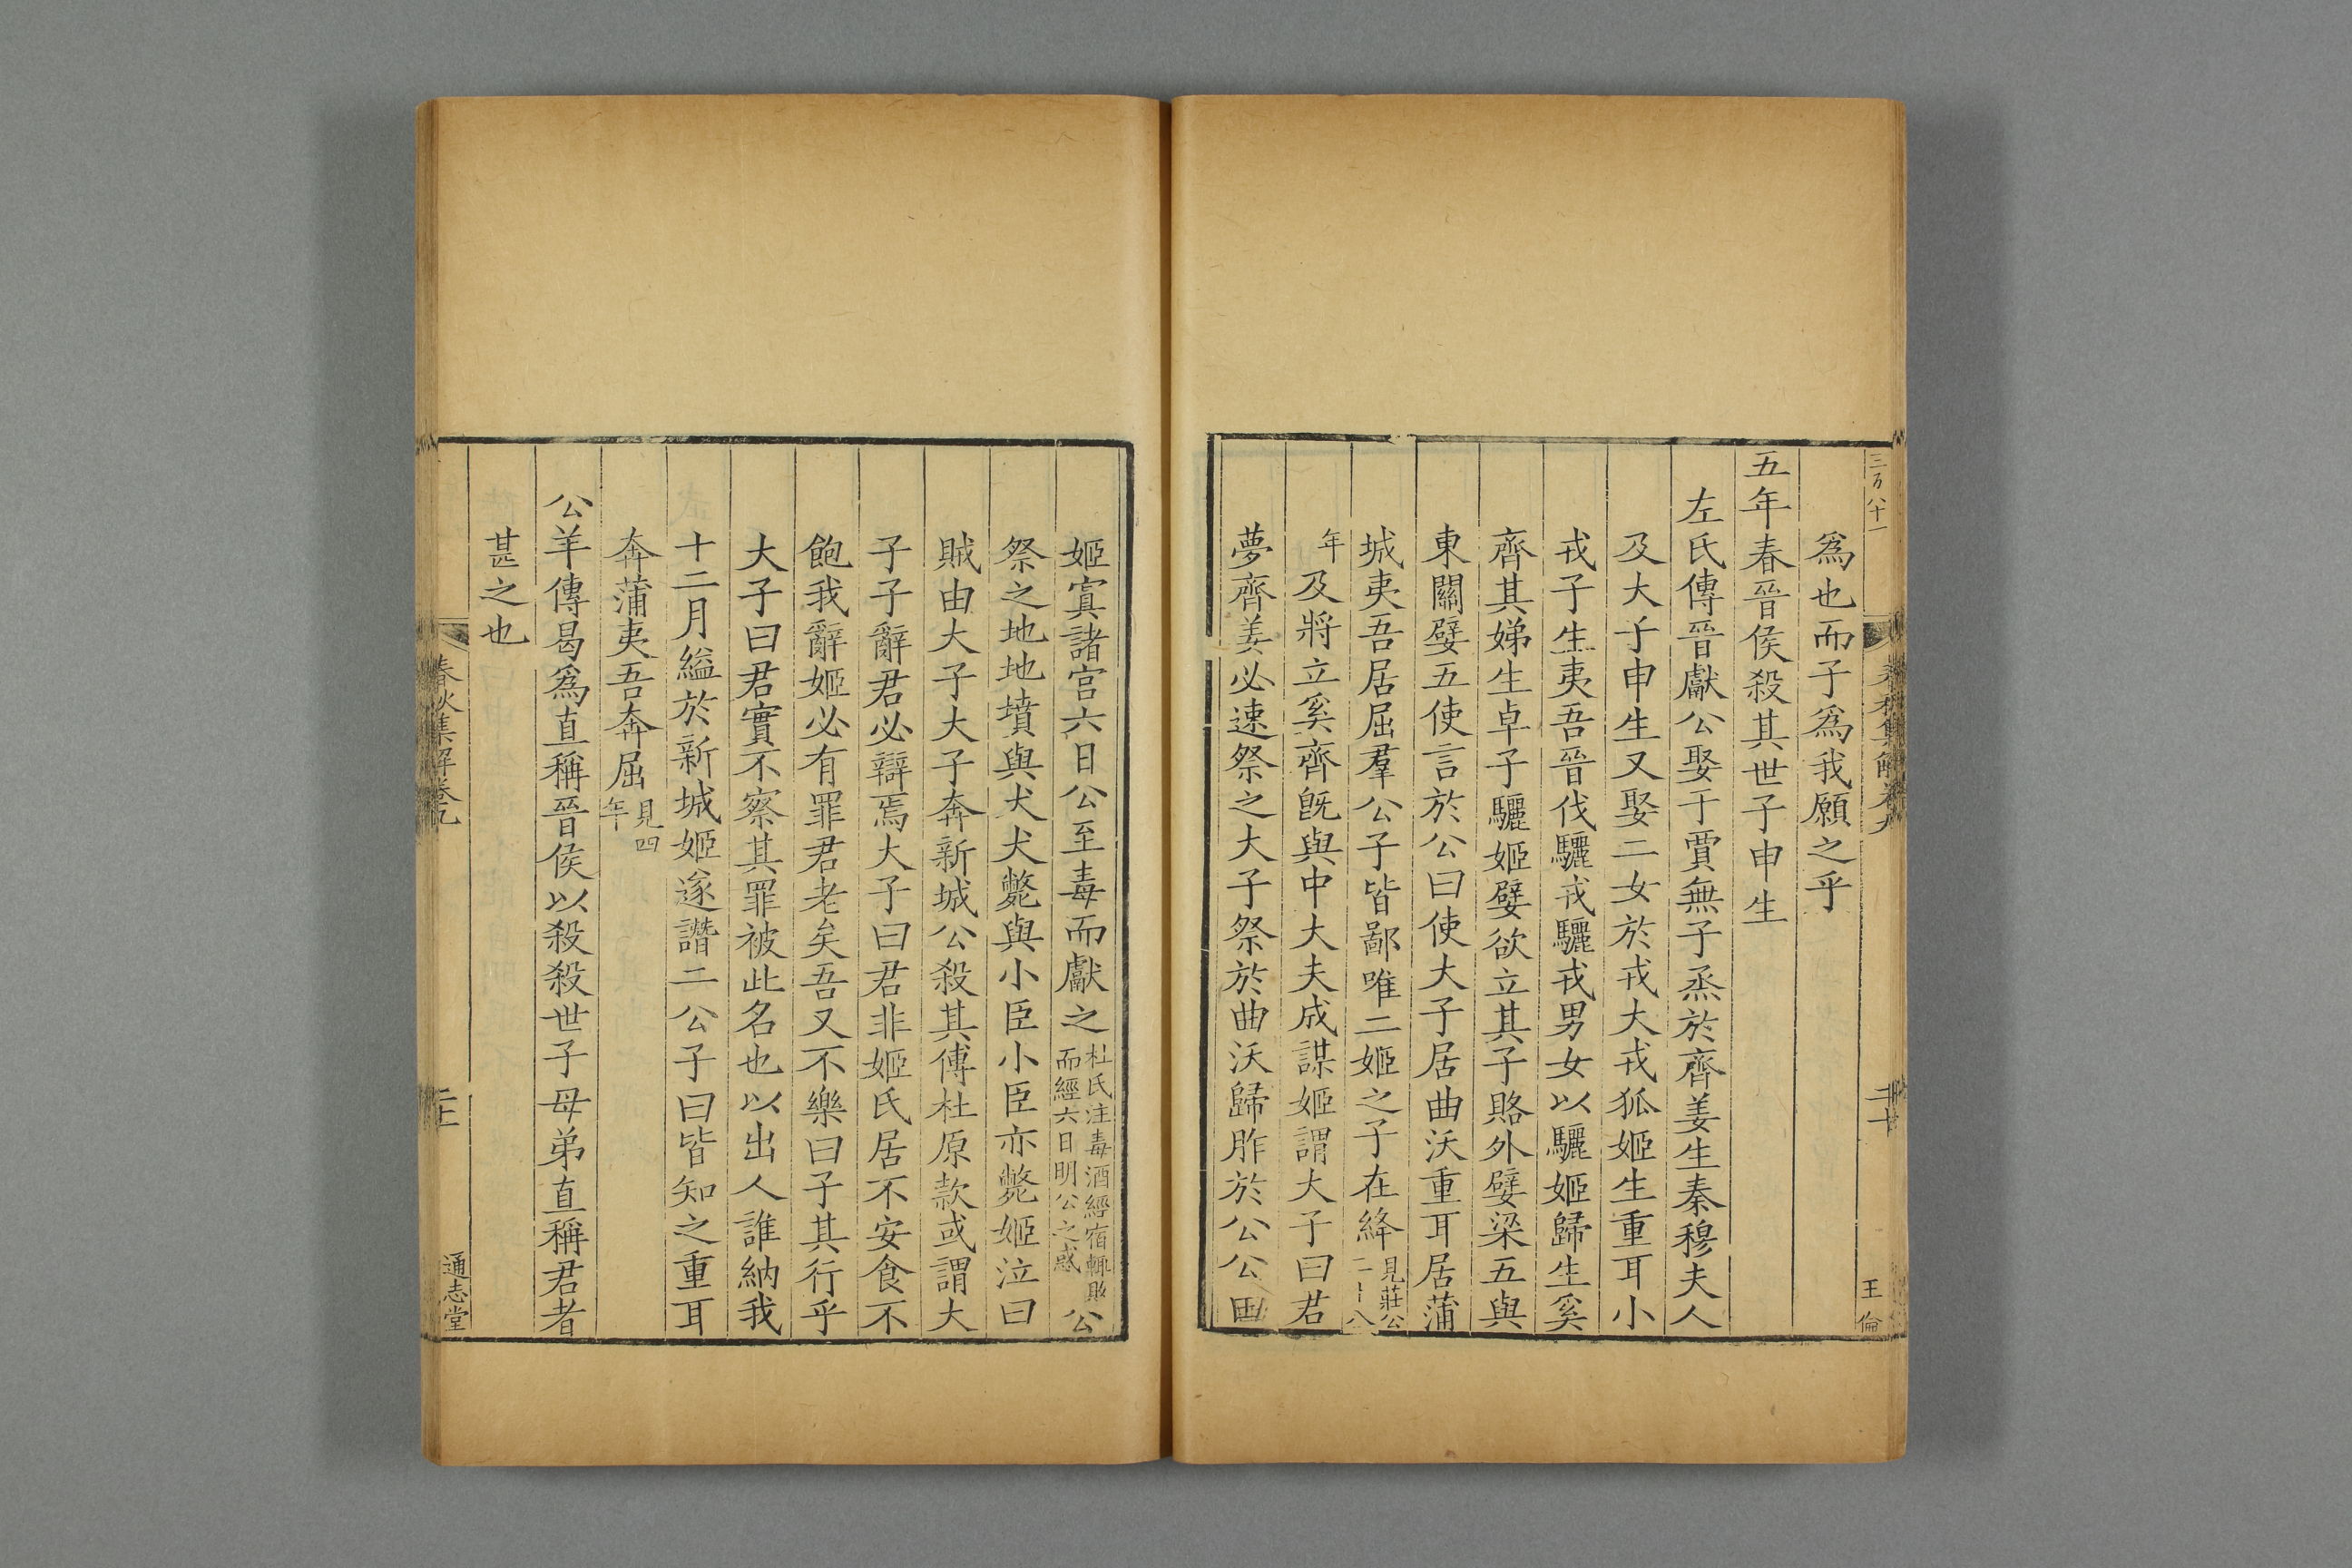 爲也而子爲我願之乎
五年春晉侯殺其世子申生
左氏傳晉獻公娶于賈無子烝於齊姜生秦穆夫人
及大子申生又娶二女於戎大戎狐姬生重耳小
戎子生夷吾晉伐驪戎驪戎男女以驪姬歸生奚
齊其娣生卓子驪姬嬖欲立其子賂外嬖梁五與
東關嬖五使言於公曰使大子居曲沃重耳居蒲
城夷吾居屈羣公子皆鄙唯二姬之子在絳見莊公二十八
年及將立奚齊旣與中大夫成謀姬謂大子曰君
夢齊姜必速祭之大子祭於曲沃歸胙於公公田
姬寘諸宮六日公至毒而獻之杜氏注毒酒經宿輒敗而經六日明公之惑公
祭之地地墳與犬犬斃與小臣小臣亦斃姬泣曰
賊由大子大子奔新城公殺其傅杜原款或謂大
子子辭君必辯焉大子曰君非姬氏居不安食不
飽我辭姬必有罪君老矣吾又不樂曰子其行乎
大子曰君實不察其罪被此名也以出人誰納我
十二月縊於新城姬遂譖二公子曰皆知之重耳
奔蒲夷吾奔屈見四年
公羊傳曷爲直稱晉侯以殺殺世子母弟直稱君者
甚之也
春秋集解卷九
通志堂
王倫